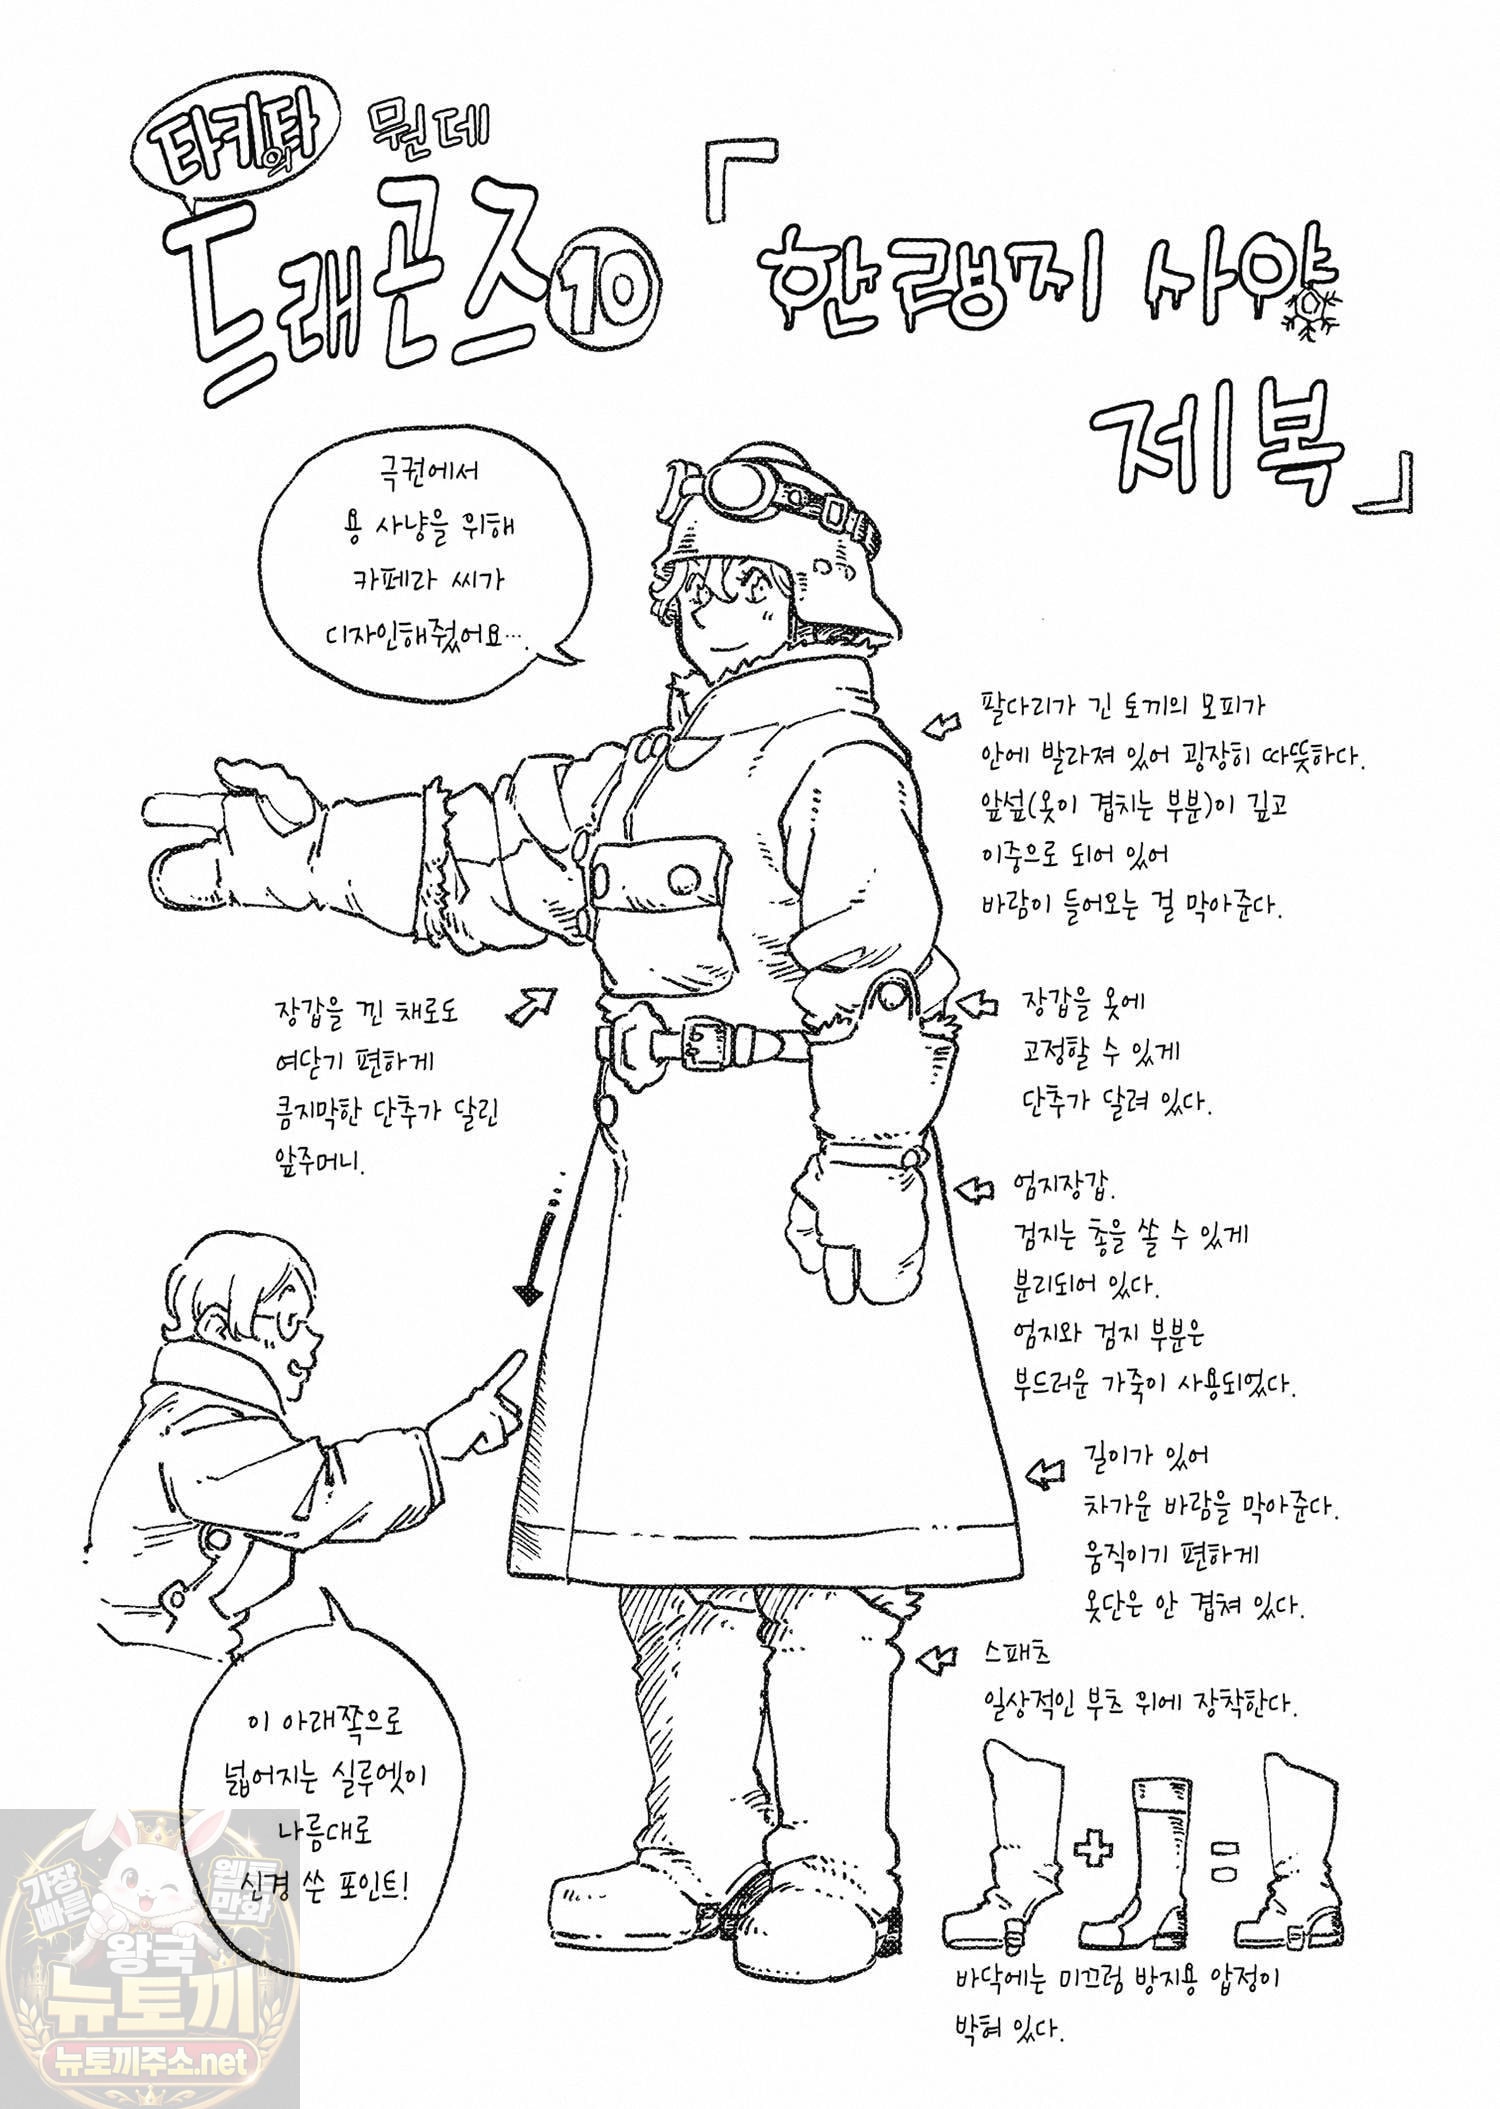 타키타의 뭔데
드래곤즈 10
「한랭지 사양
제복」
극권에서
용 사냥을 위해
카페라 씨가
디자인해줬어요….
팔다리가 긴 토끼의 모피가
안에 발라져 있어 굉장히 따뜻하다.
앞섶(옷이 겹치는 부분)이 깊고
이중으로 되어 있어
바람이 들어오는 걸 막아준다.
장갑을 낀 채로도
여닫기 편하게
큼지막한 단추가 달린
앞주머니.
장갑을 옷에
고정할 수 있게
단추가 달려 있다.
엄지장갑.
검지는 총을 쏠 수 있게
분리되어 있다.
엄지와 검지 부분은
부드러운 가죽이 사용되었다.
길이가 있어
차가운 바람을 막아준다.
움직이기 편하게
옷단은 안 겹쳐 있다.
스패츠
일상적인 부츠 위에 장착한다.
이 아래쪽으로
넓어지는 실루엣이
나름대로
신경 쓴 포인트!
바닥에는 미끄럼 방지용 압정이
박혀 있다.
가장
빠른
웹툰
만화
왕국
뉴토끼
뉴토끼주소.net